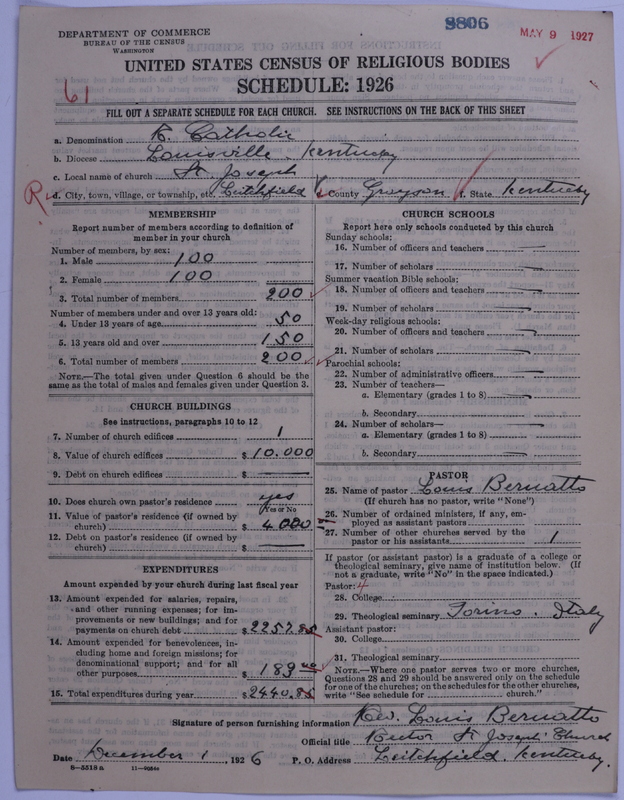 DEPARTMENT OF COMMERCE
BUREAU OF THE CENSUS
WASHINGTON
9806
MAY 9 1927
UNITED STATES CENSUS OF RELIGIOUS BODIES
SCHEDULE: 1926
61
FILL OUT A SEPARATE SCHEDULE FOR EACH CHURCH. SEE INSTRUCTIONS ON THE BACK OF THIS SHEET
a. Denomination R. Catholic
b. Diocese Louisville - Kentucky
c. Local name of church St. Joseph
R d. City, town, village, or township, etc. Leitchfield e. County Grayson f. State Kentucky
MEMBERSHIP
Report number of members according to definition of
member in your church
Number of members, by sex:
1. Male 100
2. Female 100
3. Total number of members 200
Number of members under and over 13 years old:
4. Under 13 years of age 50
5. 13 years old and over 150
6. Total number of members 200
NOTE.—The total given under Question 6 should be the
same as the total of males and females given under Question 3.
CHURCH BUILDINGS
See instructions, paragraphs 10 to 12
7. Number of church edifices 1
8. Value of church edifices $10.000
9. Debt on church edifices $ —
10. Does church own pastor's residence yes
Yes or No
11. Value of pastor's residence (if owned by
church) $ 4000
12. Debt on pastor's residence (if owned by
church) $ —
EXPENDITURES
Amount expended by your church during last fiscal year
13. Amount expended for salaries, repairs,
and other running expenses; for im-
provements or new buildings; and for
payments on church debt $2257.85
14. Amount expended for benevolences, in-
cluding home and foreign missions; for
denominational support; and for all
other purposes $ 183.00
15. Total expenditures during year $2440.85
CHURCH SCHOOLS
Report here only schools conducted by this church
Sunday schools:
16. Number of officers and teachers —
17. Number of scholars —
Summer vacation Bible schools:
18. Number of officers and teachers —
19. Number of scholars —
Week-day religious schools:
20. Number of officers and teachers —
21. Number of scholars —
Parochial schools:
22. Number of administrative officers —
23. Number of teachers—
a. Elementary (grades 1 to 8) —
b. Secondary —
24. Number of scholars—
a. Elementary (grades 1 to 8) —
b. Secondary —
PASTOR
25. Name of pastor Louis Bernatto
(If church has no pastor, write "None")
26. Number of ordained ministers, if any, em-
ployed as assistant pastors
27. Number of other churches served by the
pastor or his assistants 1
If pastor (or assistant pastor) is a graduate of a college or
theological seminary, give name of institution below. (If
not a graduate, write "No" in the space indicated.)
Pastor: 4
28. College
29. Theological seminary Torino. Italy
Assistant pastor:
30. College
31. Theological seminary
NOTE.—Where one pastor serves two or more churches,
Questions 28 and 29 should be answered only on the schedule
for one of the churches; on the schedules for the other churches,
write "See schedule for church."
Signature of person furnishing information Rev. Louis Bernatto
Official title Rector St Joseph' Church
Date December 1, 1926 P. O. Address Leitchfield, Kentucky.
8—5518 a 11—9054a